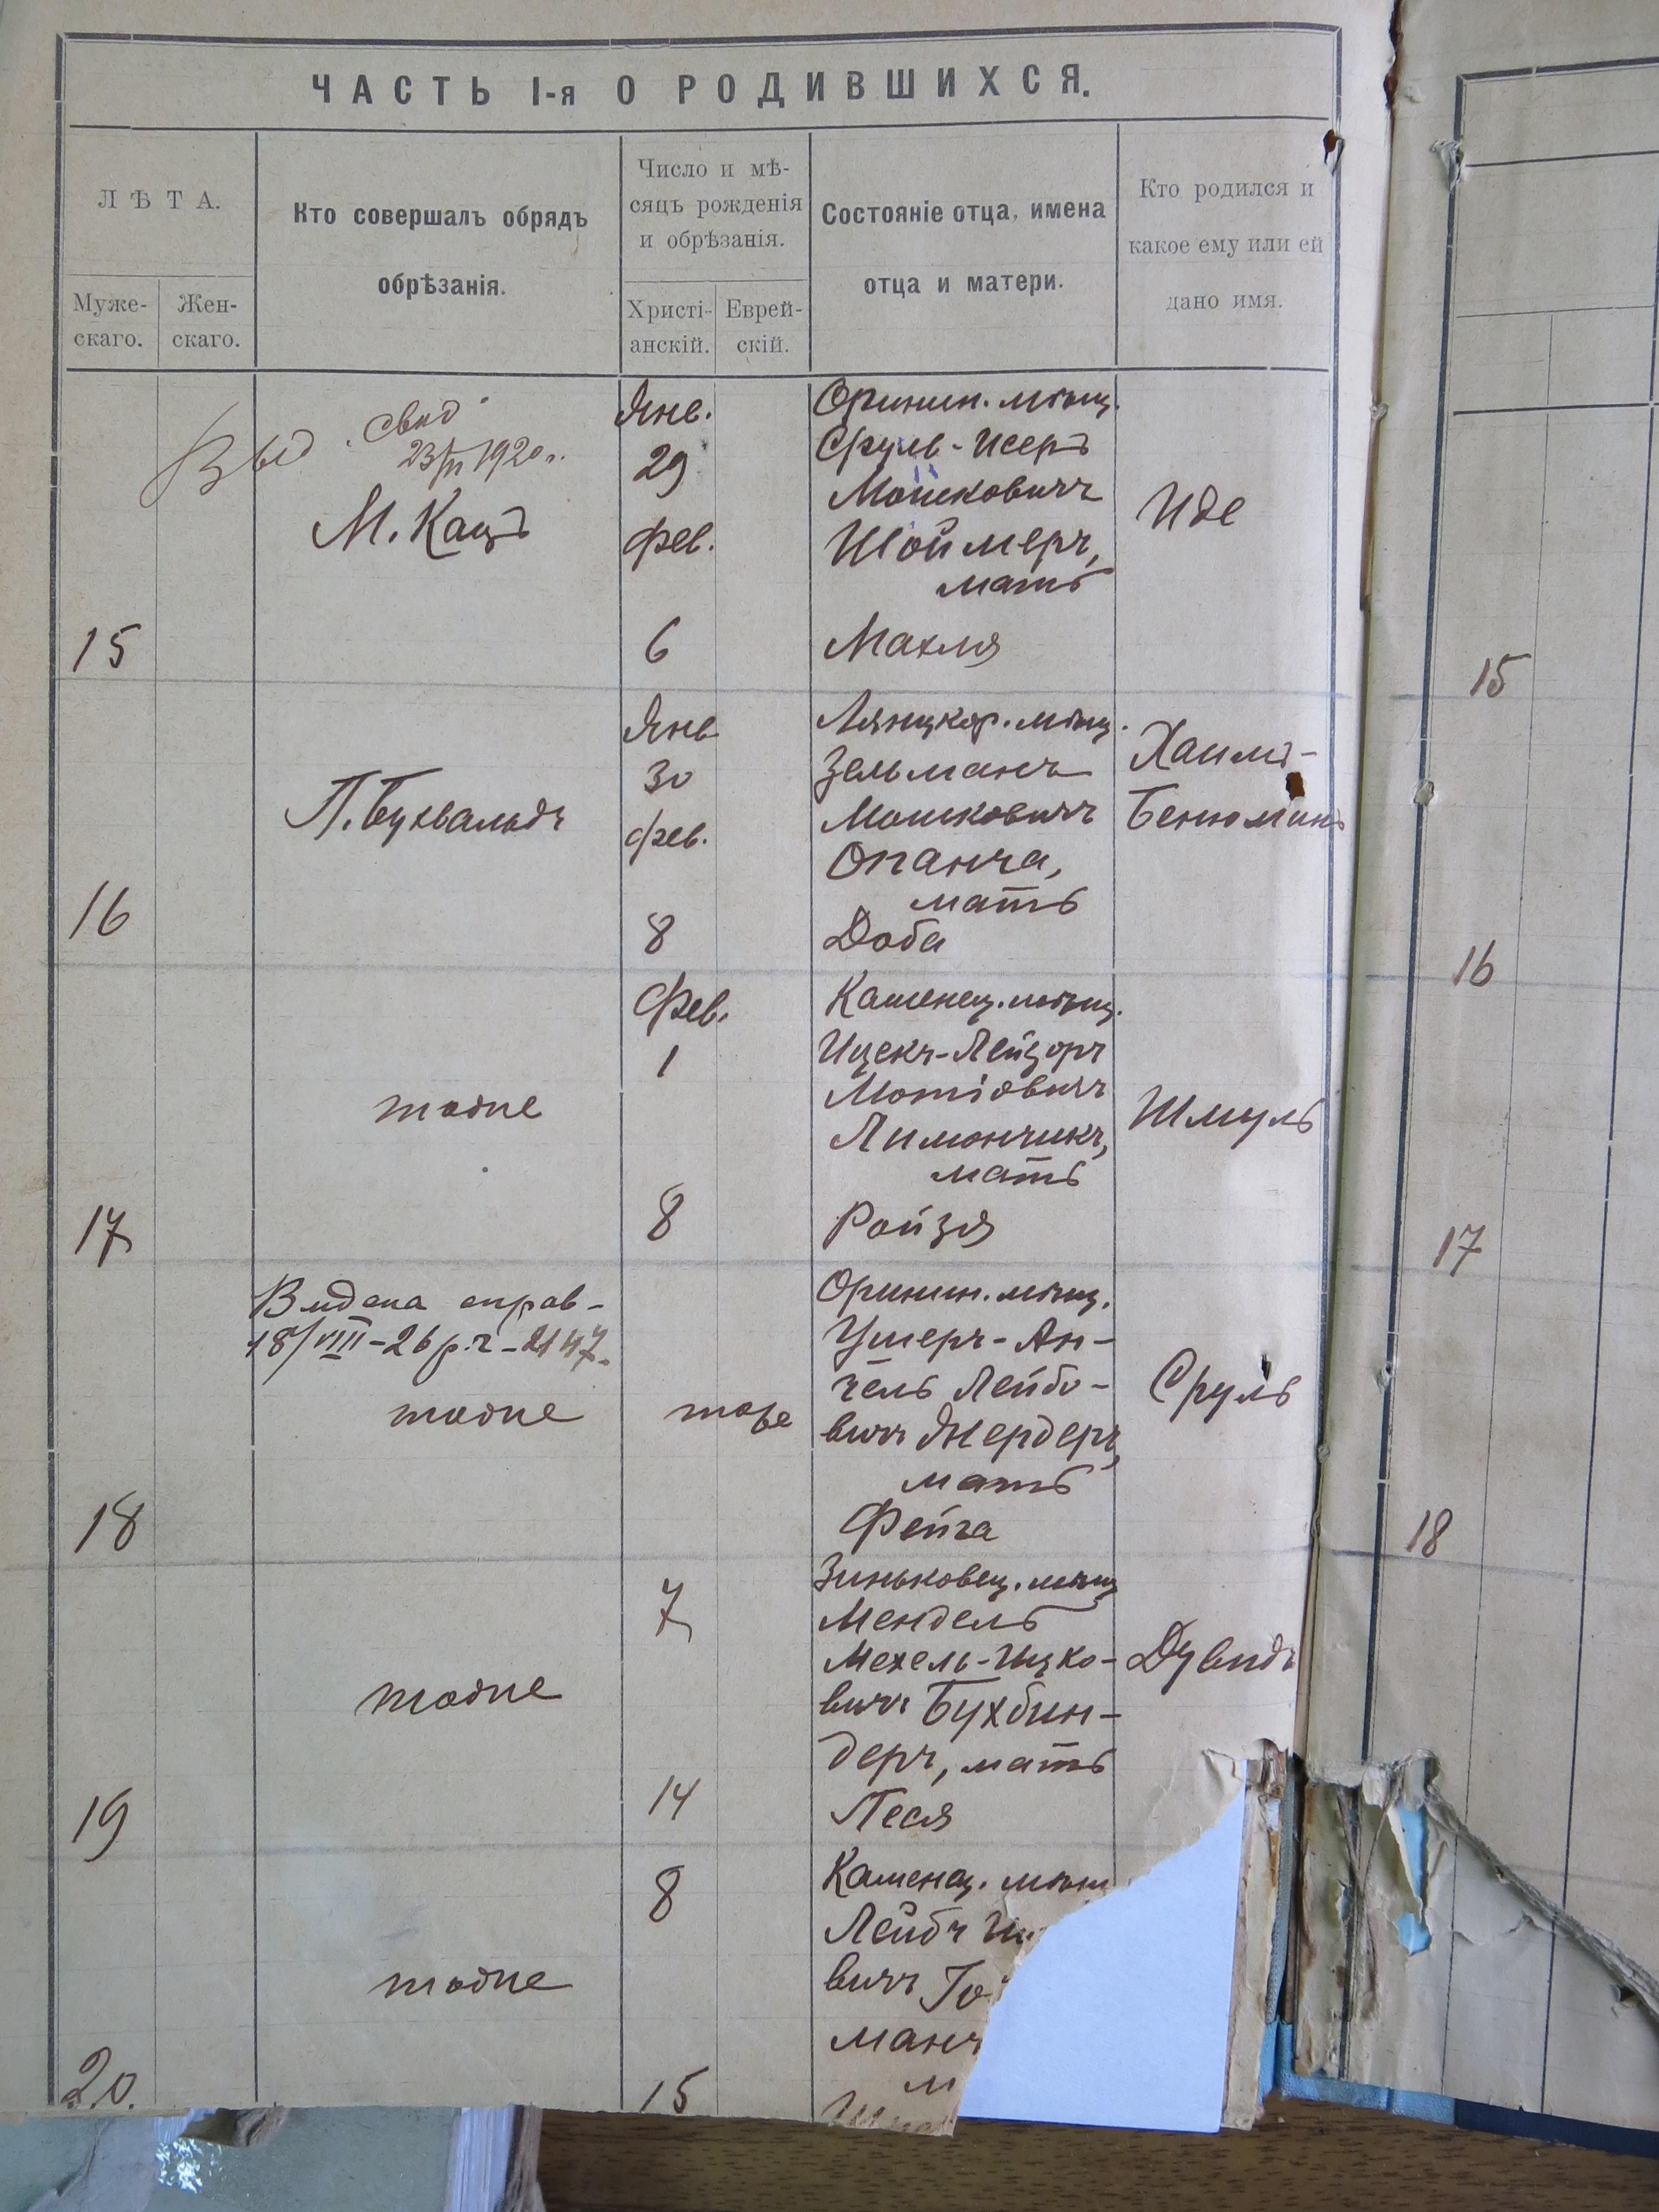 ЧАСТЬ I-я О РОДИВШИХСЯ.
ЛѢТА.
Муже-
скаго.
Жен-
скаго.
Кто совершалъ обрядъ
обрѣзанія.
Число и мѣ-
сяцъ рожденія
и обрѣзанія.
Христі-
анскій.
Еврей-
скій.
Состояніе отца, имена
отца и матери.
Кто родился и
какое ему или ей
дано имя.
15
Выд. свид
23/VI 1920 г.
М. Кацъ
Янв.
29
Фев.
6
Оринин. мѣщ.
Сруль-Исеръ
Мошковичъ
Шоймеръ,
мать
Махля
Иде
16
П. Бухвальдъ
Янв
30
Фев.
8
Лянцкор. мѣщ.
Зельманъ
Мошковичъ
Опанча,
мать
Доба
Хаимъ-
Бенюминъ
17
тоже
Фев.
1
8
Каменец. мѣщ.
Ицекъ-Лейзоръ
Мотіовичъ
Лимончикъ,
мать
Ройзя
Шмуль
18
Видана справ-
18/VIII-26 р. ч-2147.
тоже
тоже
Оринин. мѣщ.
Ушеръ-Ан-
чель Лейбо-
вичъ Жердеръ,
мать
Фейга
Сруль
19
тоже
7
14
Зиньковец. мѣщ
Мендель
Мехель-Ицко-
вичъ Бухбин-
деръ, мать
Песя
Дувидъ
20.
тоже
8
15
Каменец. мѣщ
Лейбъ
вичъ
манъ
м
15
16
17
18